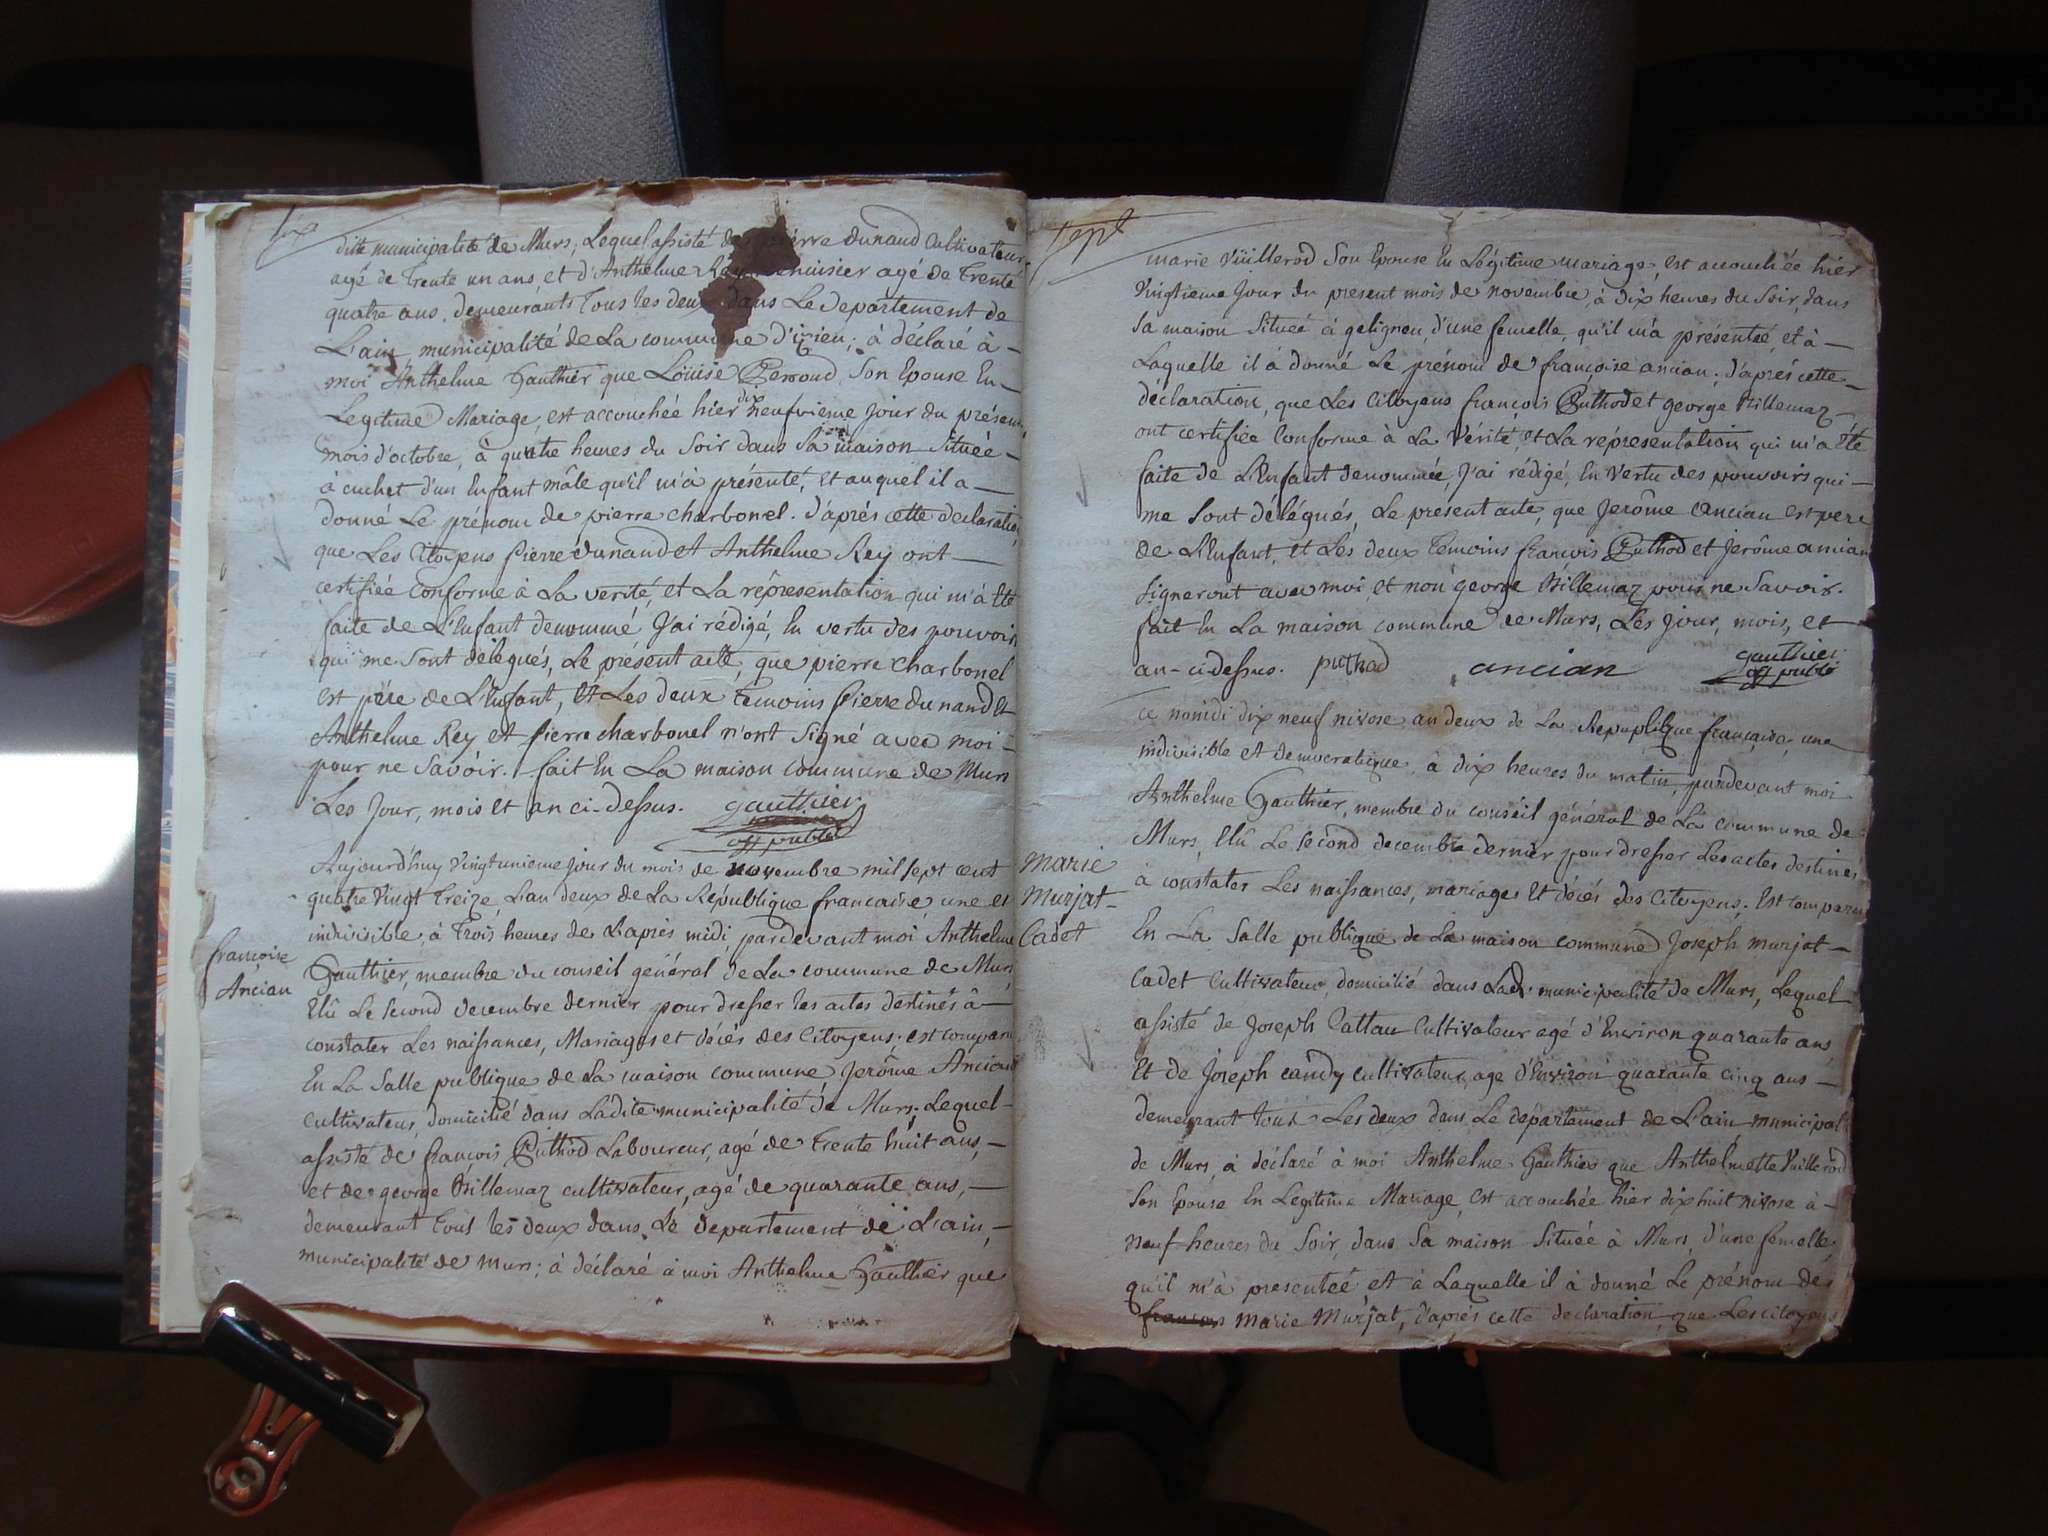 six
dite municipalité de Murs, Lequel assisté de pierre dunand Cultivateur
agé de trente un ans, et d'Anthelme Rey menuisier agé de trente
quatre ans, demeurants tous les deux dans Le departement de
L'ain, municipalité de La commune d'izieu; à déclaré à
moi Anthelme Gauthier que Louise Perroud, Son Epouse En
Legitime Mariage, est accouchée hier dix neufvieme jour du présent
mois d'octobre, à quatre heures du Soir dans Sa maison Située
à cuchet d'un Enfant mâle qu'il m'à présenté, Et auquel il a
donné Le prénom de pierre charbonel. d'après cette declaration
que Les Citoyens Pierre dunand et Anthelme Rey ont
certifiée Conforme à La verité, et La réprésentation qui m'à Eté
faite de L'Enfant denommé J'ai rédigé, En vertu des pouvoirs
qui me Sont délegués, Le présent acte, que pierre charbonel
est père de L'Enfant, Et Les deux temoins Pierre dunand et
Anthelme Rey et pierre charbonel n'ont Signé avec moi
pour ne Savoir. fait En La maison commune de Murs
Les Jour, mois Et an ci-dessus. gauthier
off public
françoise
Ancian
Aujourd'huy Vingtunieme jour du mois de novembre mil sept cent
quatre Vingt treize L'an deux de La République francaise une et
indivisible, à Trois heures de L'aprés midi, pardevant moi Anthelme
Gauthier, membre du conseil général de La commune de Murs
Elû Le Second decembre dernier pour dresser les actes destinés à
constater Les naissances, Mariages et décés des Citoyens; est comparu
En La Salle publique de La maison commune Jerôme Ancian
cultivateur, domicilié dans Ladite municipalité de Murs, Lequel
assisté de françois Puthod Laboureur, agé de trente huit ans,
et de george Billemaz cultivateur, agé de quarante ans,
demeurant tous les deux dans Le departement de L'ain,
municipalité de murs; à déclaré à moi Anthelme Gauthier que
sept
marie Vüillerod Son Epouse En Légitime mariage, est accouchée hier
Vingtieme Jour du present mois de novembre, à dix heures du Soir, dans
Sa maison Située à geligneu, d'une femelle, qu'il m'a présentée, et à
Laquelle il à donné Le prénom de françoise ancian; d'après cette
déclaration, que Les Citoyens françois Puthod et george Billemaz
ont certifiée Conforme à La Vérité, et La réprésentation qui m'a Eté
faite de L'Enfant denommée, J'ai rédigé, En Vertu des pouvoirs qui
me Sont délégués, Le présent acte, que Jerôme ancian est pere
de L'Enfant, et Les deux temoins françois Puthod et Jerôme ancian
Signeront avec moi, et non george Billemaz pour ne Savoir.
fait En La maison commune de Murs, Les Jour, mois, et
an-ci-dessus. puthod ancian gauthier
off public
marie
Murjat
Cadet
Ce nonidi dix neuf nivose an deux de La Republique française, une
indivisible et democratique, à dix heures du matin, pardevant moi
Anthelme Gauthier, membre du conseil général de La commune de
Murs, Elû Le Second decembre dernier pour dresser Les actes destinés
à constater Les naissances, mariages Et décés des Citoyens; Est comparu
En La Salle publique de La maison commune Joseph murjat
Cadet Cultivateur, domicilié dans Lad. municipalité de Murs, Lequel
assisté de Joseph Cattau Cultivateur agé d'Environ quarante ans
Et de Joseph candy cultivateur, agé d'Environ quarante cinq ans
demeurant tous Les deux dans Le département de L'ain, municipal
de Murs, à déclaré à moi Anthelme Gauthier que Anthelmette Vuillerod
Son Epouse En Legitime Mariage, est accouchée hier dix huit nivose à
neuf heures du Soir, dans Sa maison Située à Murs, d'une femelle,
qu'il m'à presentée, et à Laquelle il à donné Le prénom de
françois marie Murjat, d'après cette declaration, que Les Citoyens